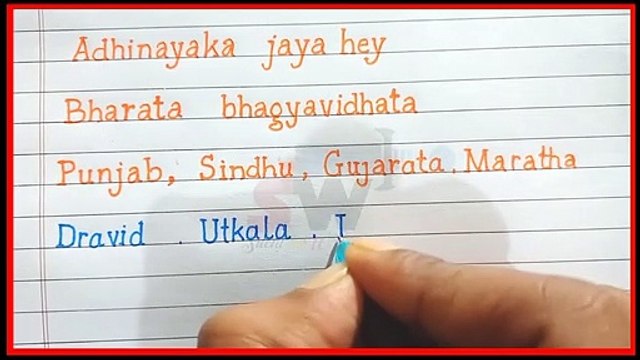 Adhinayaka jaya hey
Bharata bhagyavidhata
Punjab, Sindhu, Gujarata. Maratha
Dravid . Utkala . I